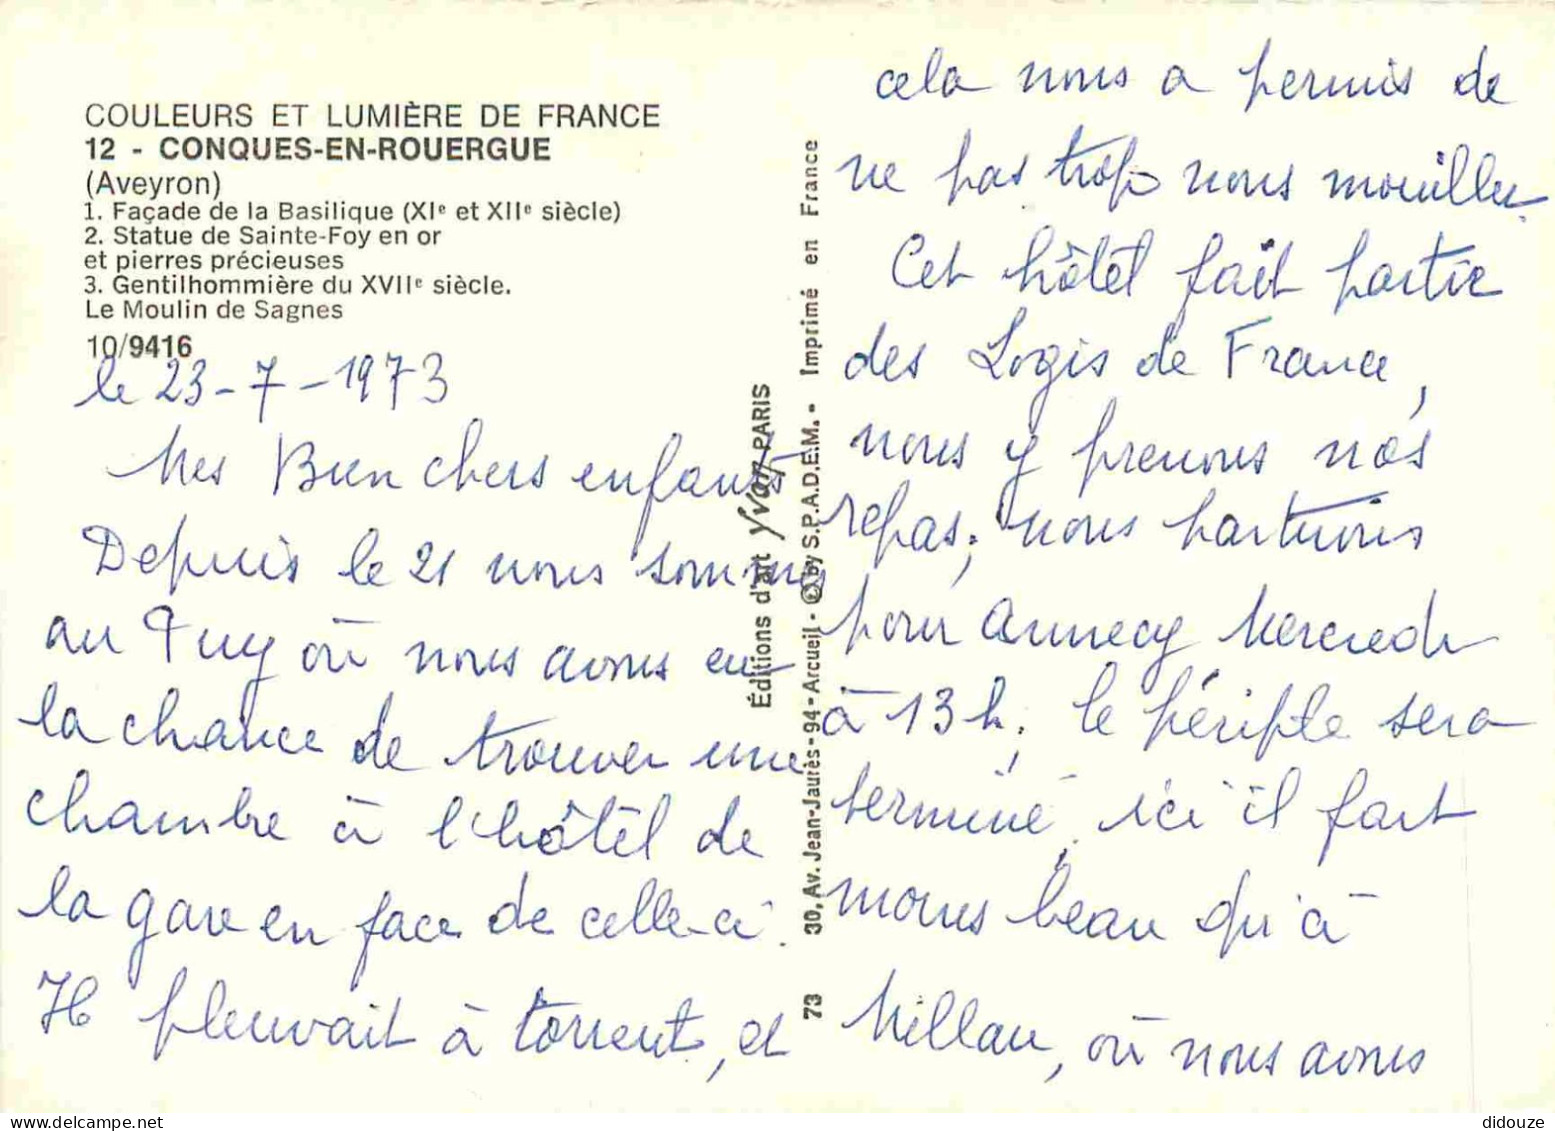 COULEURS ET LUMIÈRE DE FRANCE
12 - CONQUES-EN-ROUERGUE
(Aveyron)
1. Façade de la Basilique (XIe et XIIe siècle)
2. Statue de Sainte-Foy en or
et pierres précieuses
3. Gentilhommière du XVIIe siècle.
Le Moulin de Sagnes
10/9416
le 23-7-1973
Mes Bien chers enfants
Depuis le 21 nous sommes
au Puy où nous avons eu
la chance de trouver une
chambre à l'hôtel de
la gare en face de celle-ci.
Il pleuvait à torrent, et
Éditions d'art Yvon PARIS
73 30, Av. Jean-Jaurès - 94 - Arcueil - © by S.P.A.D.E.M. - Imprimé en France
cela nous a permis de
ne pas trop nous mouiller.
Cet hôtel fait partie
des Logis de France,
nous y prenons nos
repas; nous partirons
pour Annecy Mercredi
à 13h; le périple sera
terminé, ici il fait
moins beau qu'à
Millau, où nous avons
didouze